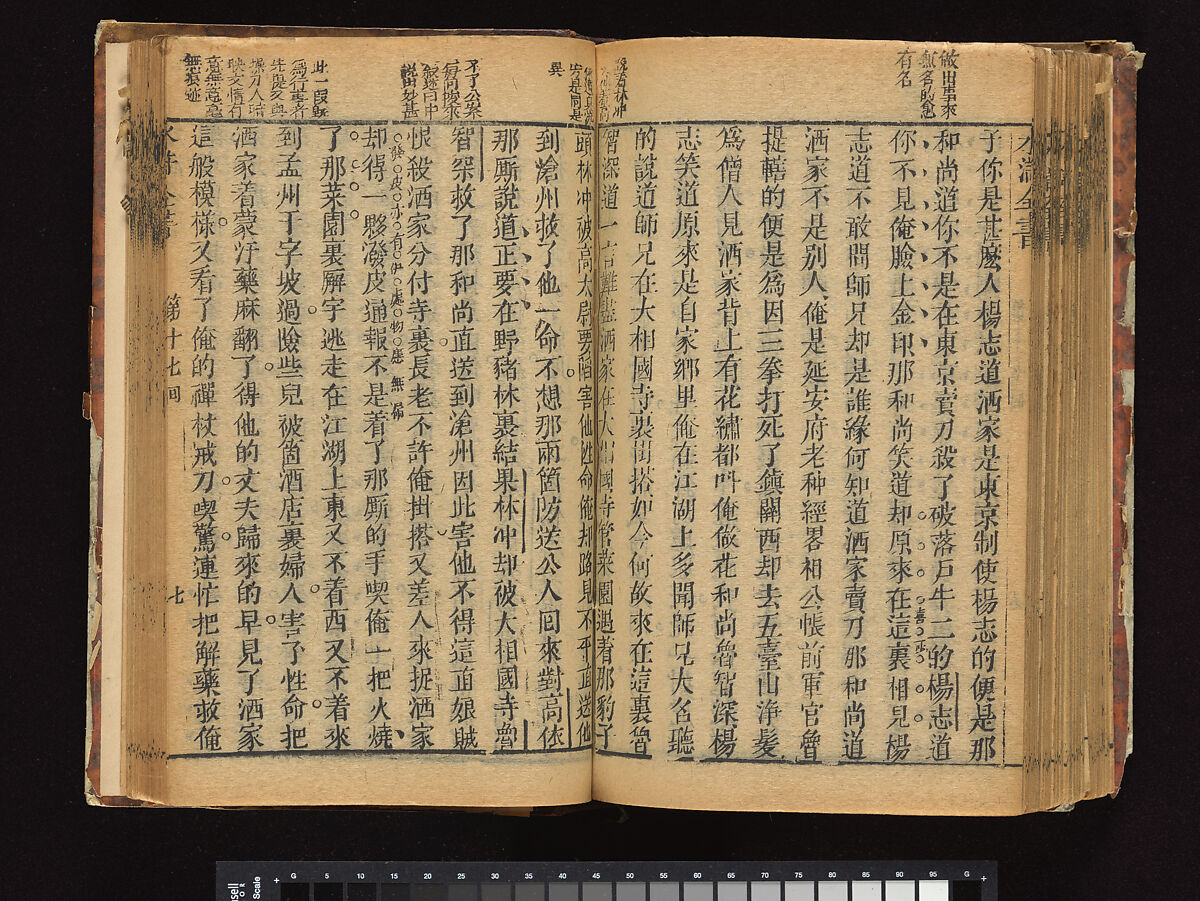 水滸全書
做出事來
無名的忽
有名
子你是甚麽人楊志道洒家是東京制使楊志的便是那
和尚道你不是在東京賣刀殺了破落戸牛二的楊志道
你不見俺臉上金印那和尚笑道却原來在這裏相見楊
志道不敢問師兄却是誰緣何知道洒家賣刀那和尚道
洒家不是別人俺是延安府老种經畧相公帳前軍官魯
提轄的便是爲因三拳打死了鎮關西却去五臺山淨髮
爲僧人見洒家背上有花繡都呌俺做花和尚魯智深楊
志笑道原來是自家鄉里俺在江湖上多聞師兄大名聽
的說道師兄在大相國寺裏掛搭如今何故來在這裏魯
說着林冲
智深道一言難盡洒家在大相國寺管菜園遇着那豹子
頭林冲被高太尉要陷害他性命俺却路見不平直送他
異
到滄州救了他一命不想那兩箇防送公人囘來對高俅
那厮說道正要在野猪林裏結果林冲却被大相國寺魯
不了公案
每向後來
叙述口中
說出妙甚
智深救了那和尚直送到滄州因此害他不得這直娘賊
恨殺洒家分付寺裏長老不許俺掛搭又差人來捉洒家
皮亦有處物患無備
却得一夥潑皮通報不是着了那厮的手喫俺一把火燒
此一段
了那菜園裏廨宇逃走在江湖上東又不着西又不着來
爲行事者
到孟州十字坡過險些兒被箇酒店裏婦人害了性命把
操刀人時
映文情有
洒家着蒙汗藥麻翻了得他的丈夫歸來的早見了洒家
意無意毫
無痕迹
這般模樣又看了俺的禪杖戒刀喫驚連忙把解藥救俺
水滸全書 第十七回 七
G 5 10 15 20 25 30 35 40 45 50 55 60 65 70 75 80 85 90 95 G